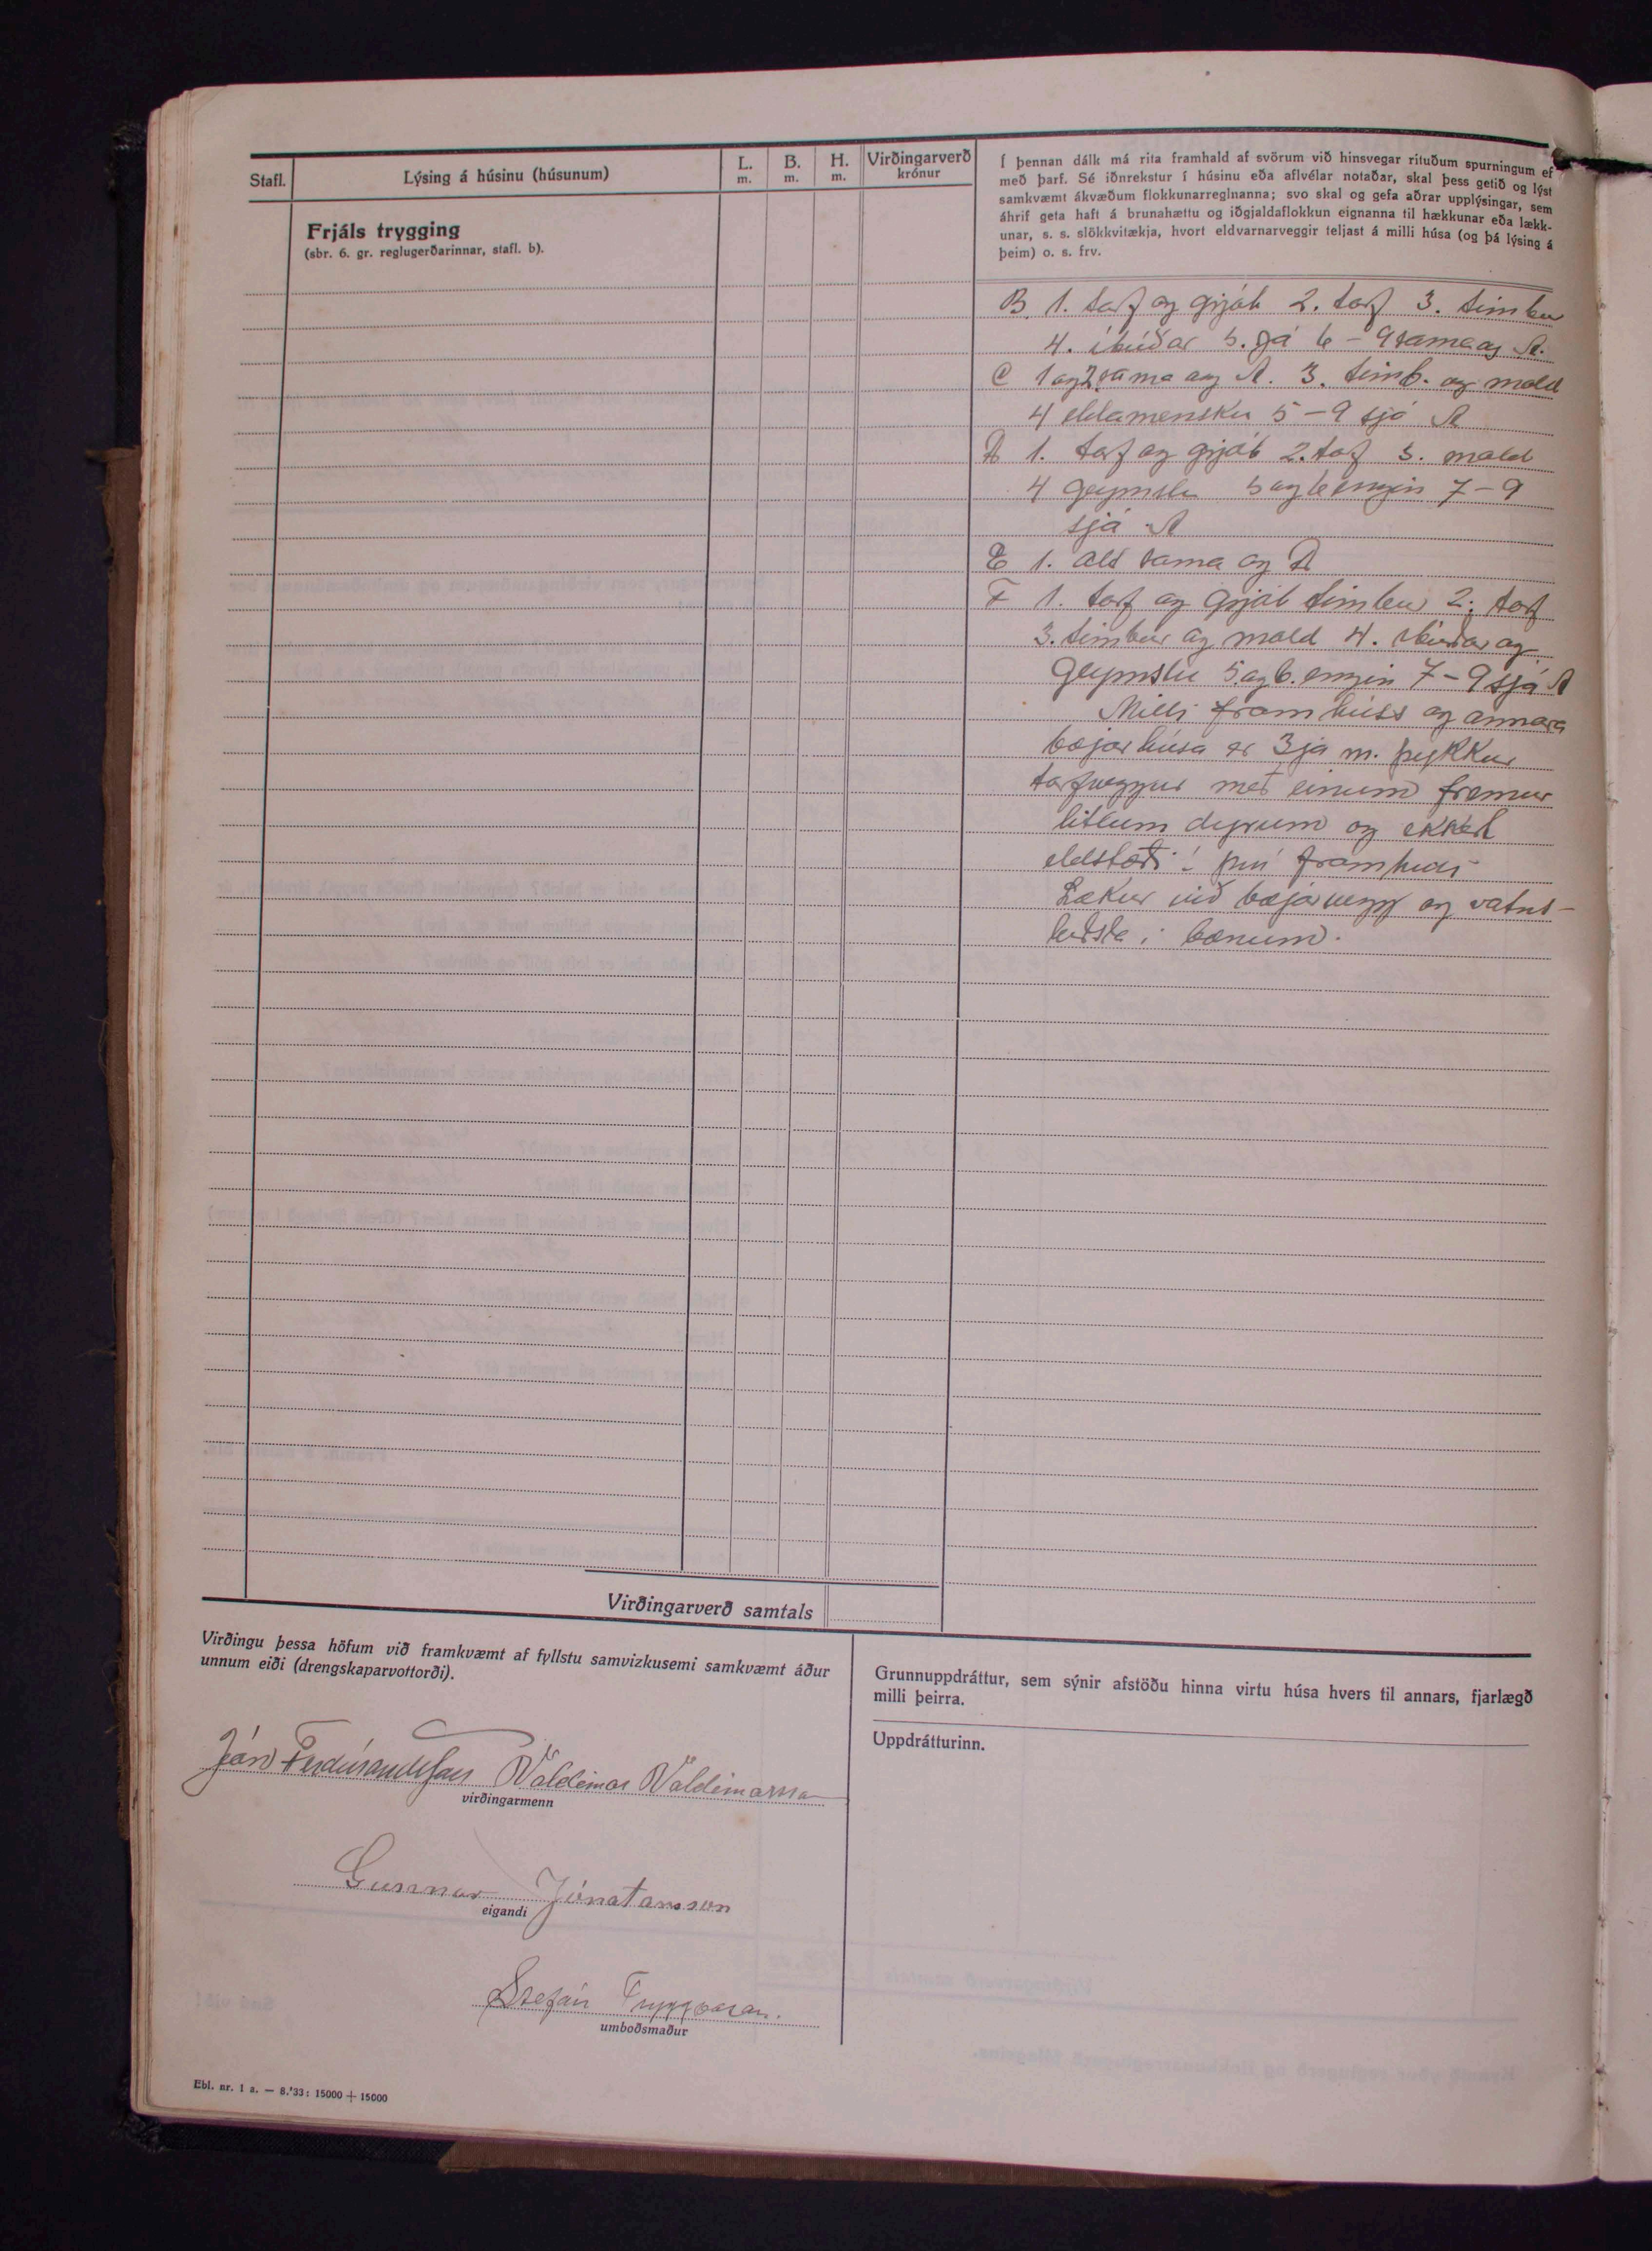 Stafl.
Lýsing á húsinu (húsunum)
L.
m.
B.
m.
H.
m.
Virðingarverð
krónur
Frjáls trygging
(sbr. 6. gr. reglugerðarinnar, stafl. b).
Í þennan dálk má rita framhald af svörum við hinsvegar rituðum spurningum ef
með þarf. Sé iðnrekstur í húsinu eða aflvélar notaðar, skal þess getið og lýst
samkvæmt ákvæðum flokkunarreglnanna; svo skal og gefa aðrar upplýsingar, sem
áhrif geta haft á brunahættu og iðgjaldaflokkun eignanna til hækkunar eða lækk-
unar, s. s. slökkvitækja, hvort eldvarnarveggir teljast á milli húsa (og þá lýsing á
þeim) o. s. frv.
B. 1. torf og grjót 2. torf 3. timbur
4. íbúðar 5. já 6 – 9 sama og A.
C 1 og 2 sama og A. 3. timb. og mold
4 eldamensku 5 – 9 sjá A
D 1. torf og grjót 2. torf 3. mold
4 geymslu 5 og 6 engin 7 – 9
sjá A
E 1. alt sama og D
F 1. torf og grjót timbur 2. torf
3. timbur og mold 4. íbúðar og
geymslu 5. og 6. engin 7 – 9 sjá A
Milli framhúss og annara
bæjarhúsa er 3ja m. þykkur
torfveggur með einum fremur
litlum dyrum og ekkert
eldstæði í því framhúsi
Lækur við bæjarvegg og vatns-
leiðsla í bænum.
Virðingarverð samtals
Virðingu þessa höfum við framkvæmt af fyllstu samvizkusemi samkvæmt áður
unnum eiði (drengskaparvottorði).
Jón Ferdínandsson Valdemar Valdemarsson
virðingarmenn
Gunnar Jónatansson
eigandi
Stefán Tryggvason.
umboðsmaður
Grunnuppdráttur, sem sýnir afstöðu hinna virtu húsa hvers til annars, fjarlægð
milli þeirra.
Uppdrátturinn.
Ebl. nr. 1 a. — 8.'33: 15000 + 15000